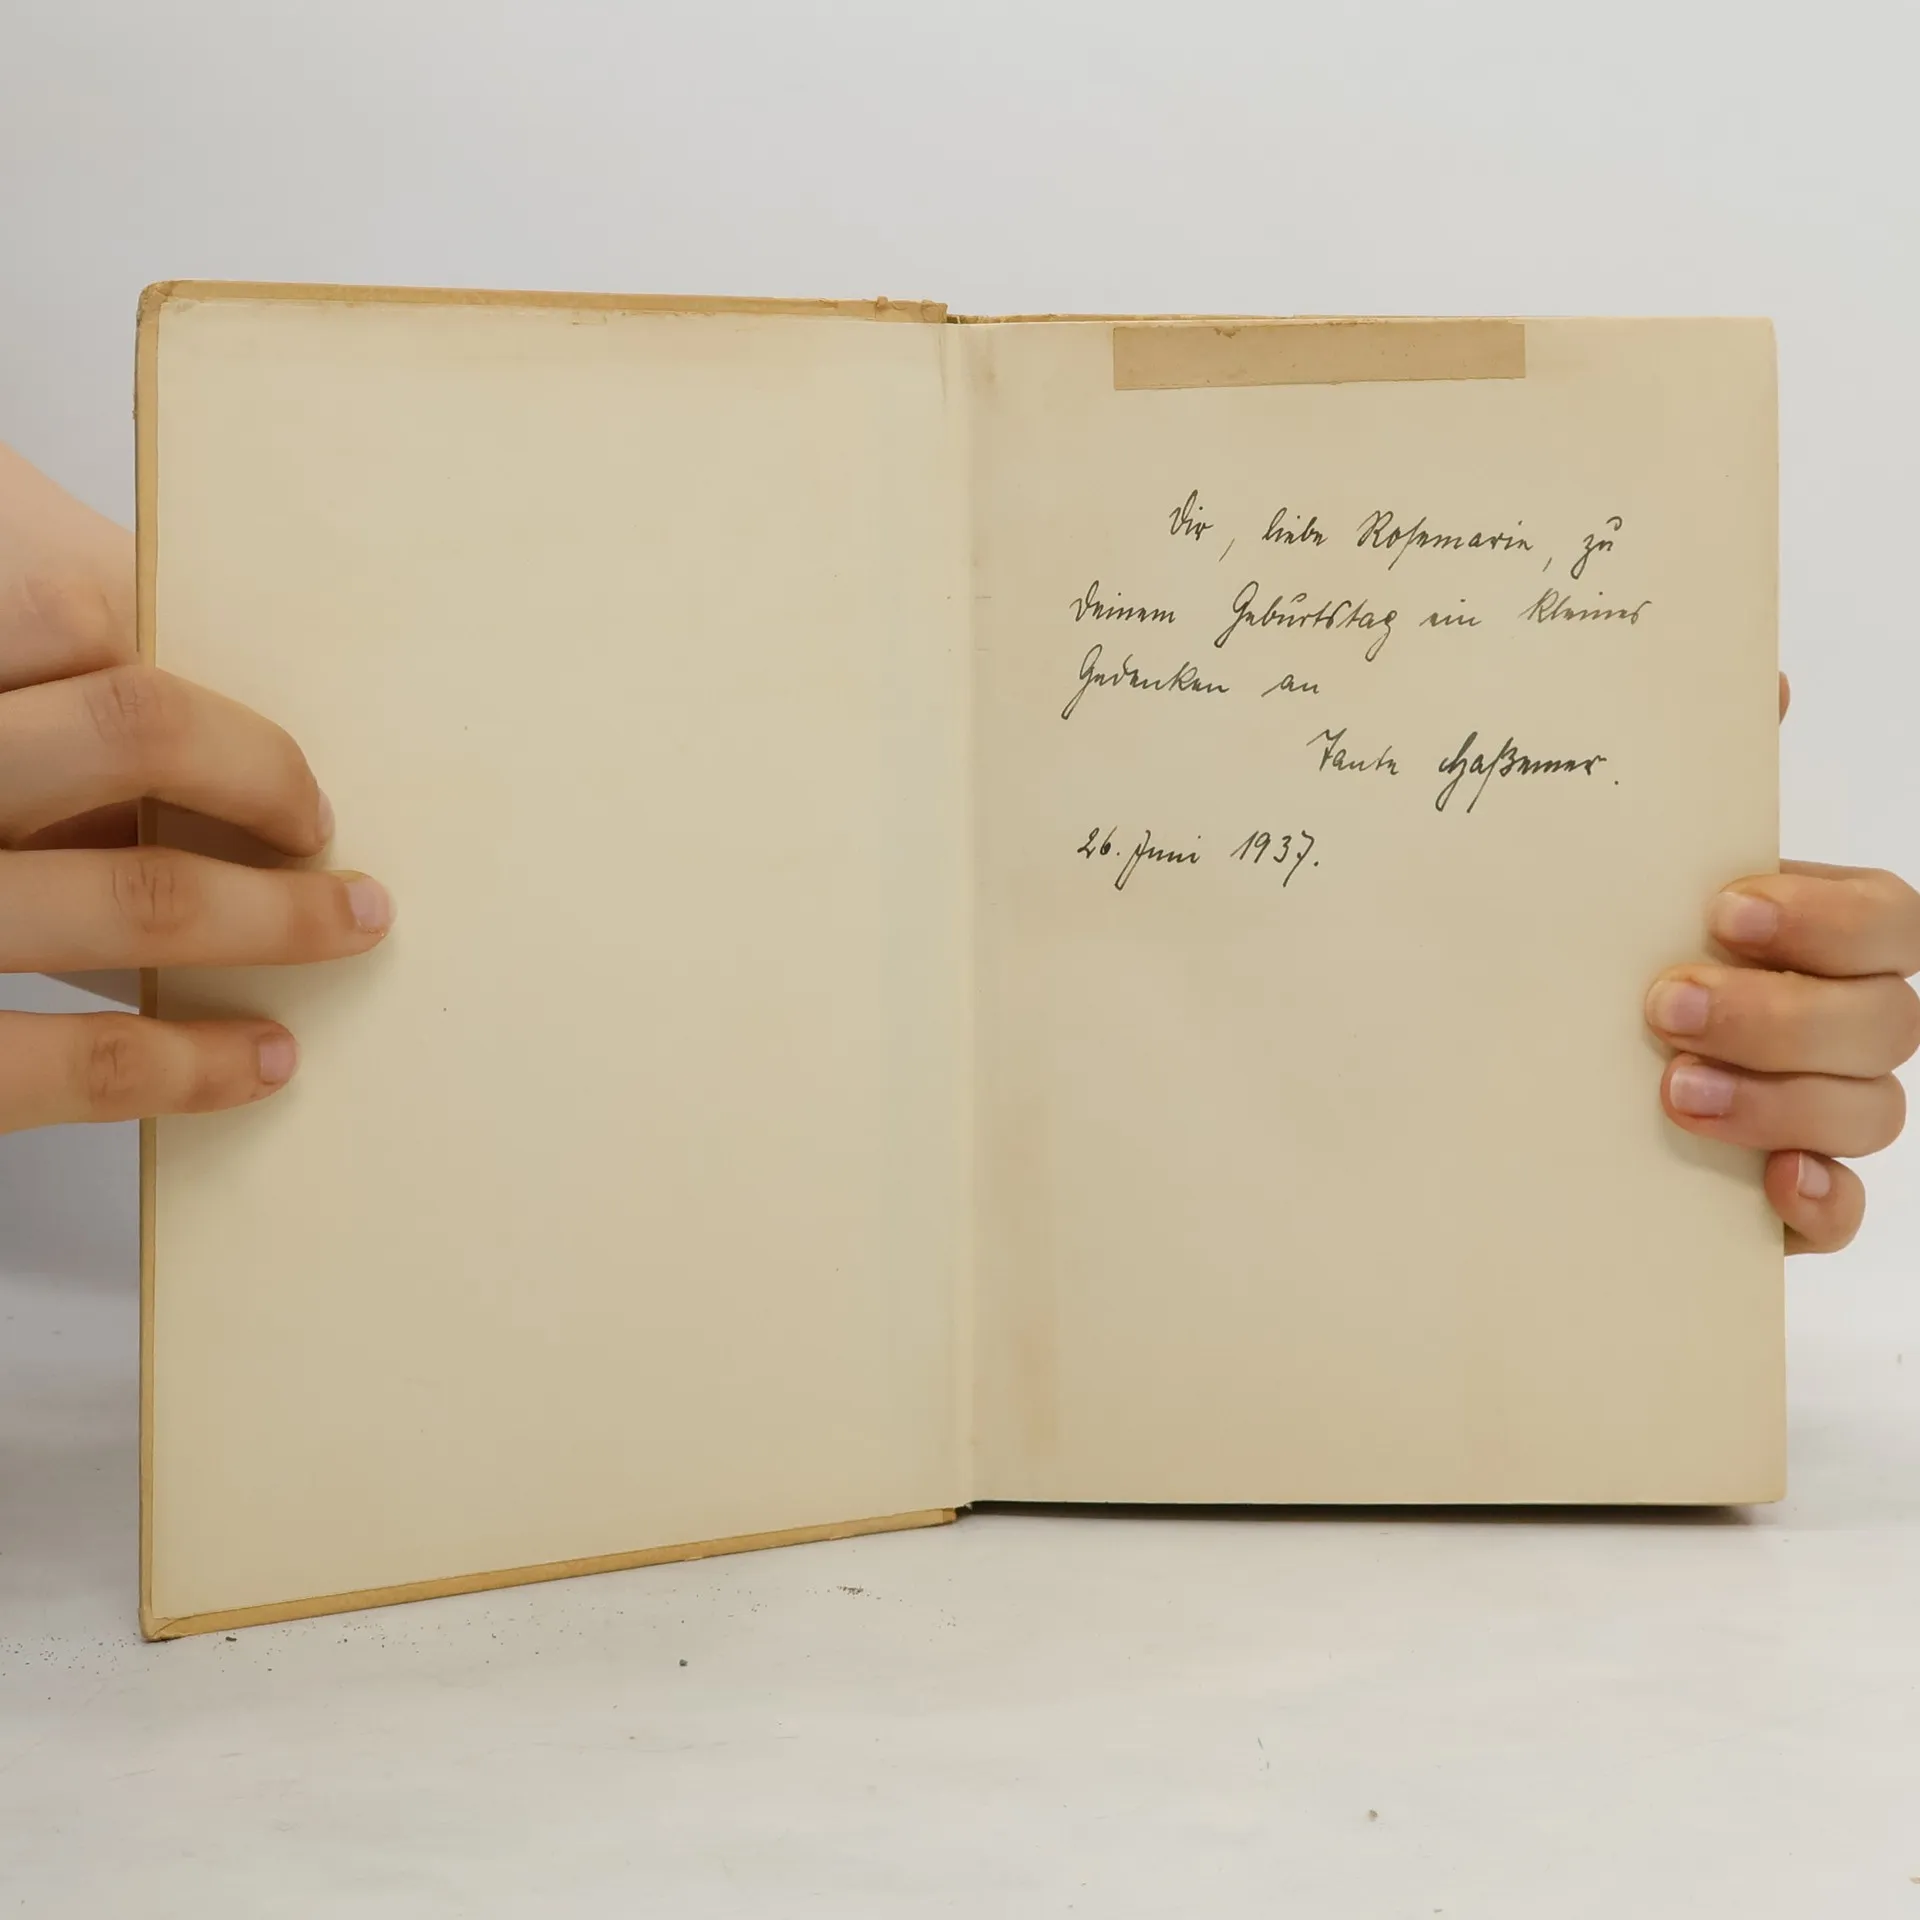 Dir, liebe Rosemarie, zu
deinem Geburtstag ein kleines
Gedenken an
Tante Haßemer.
26. Juni 1937.